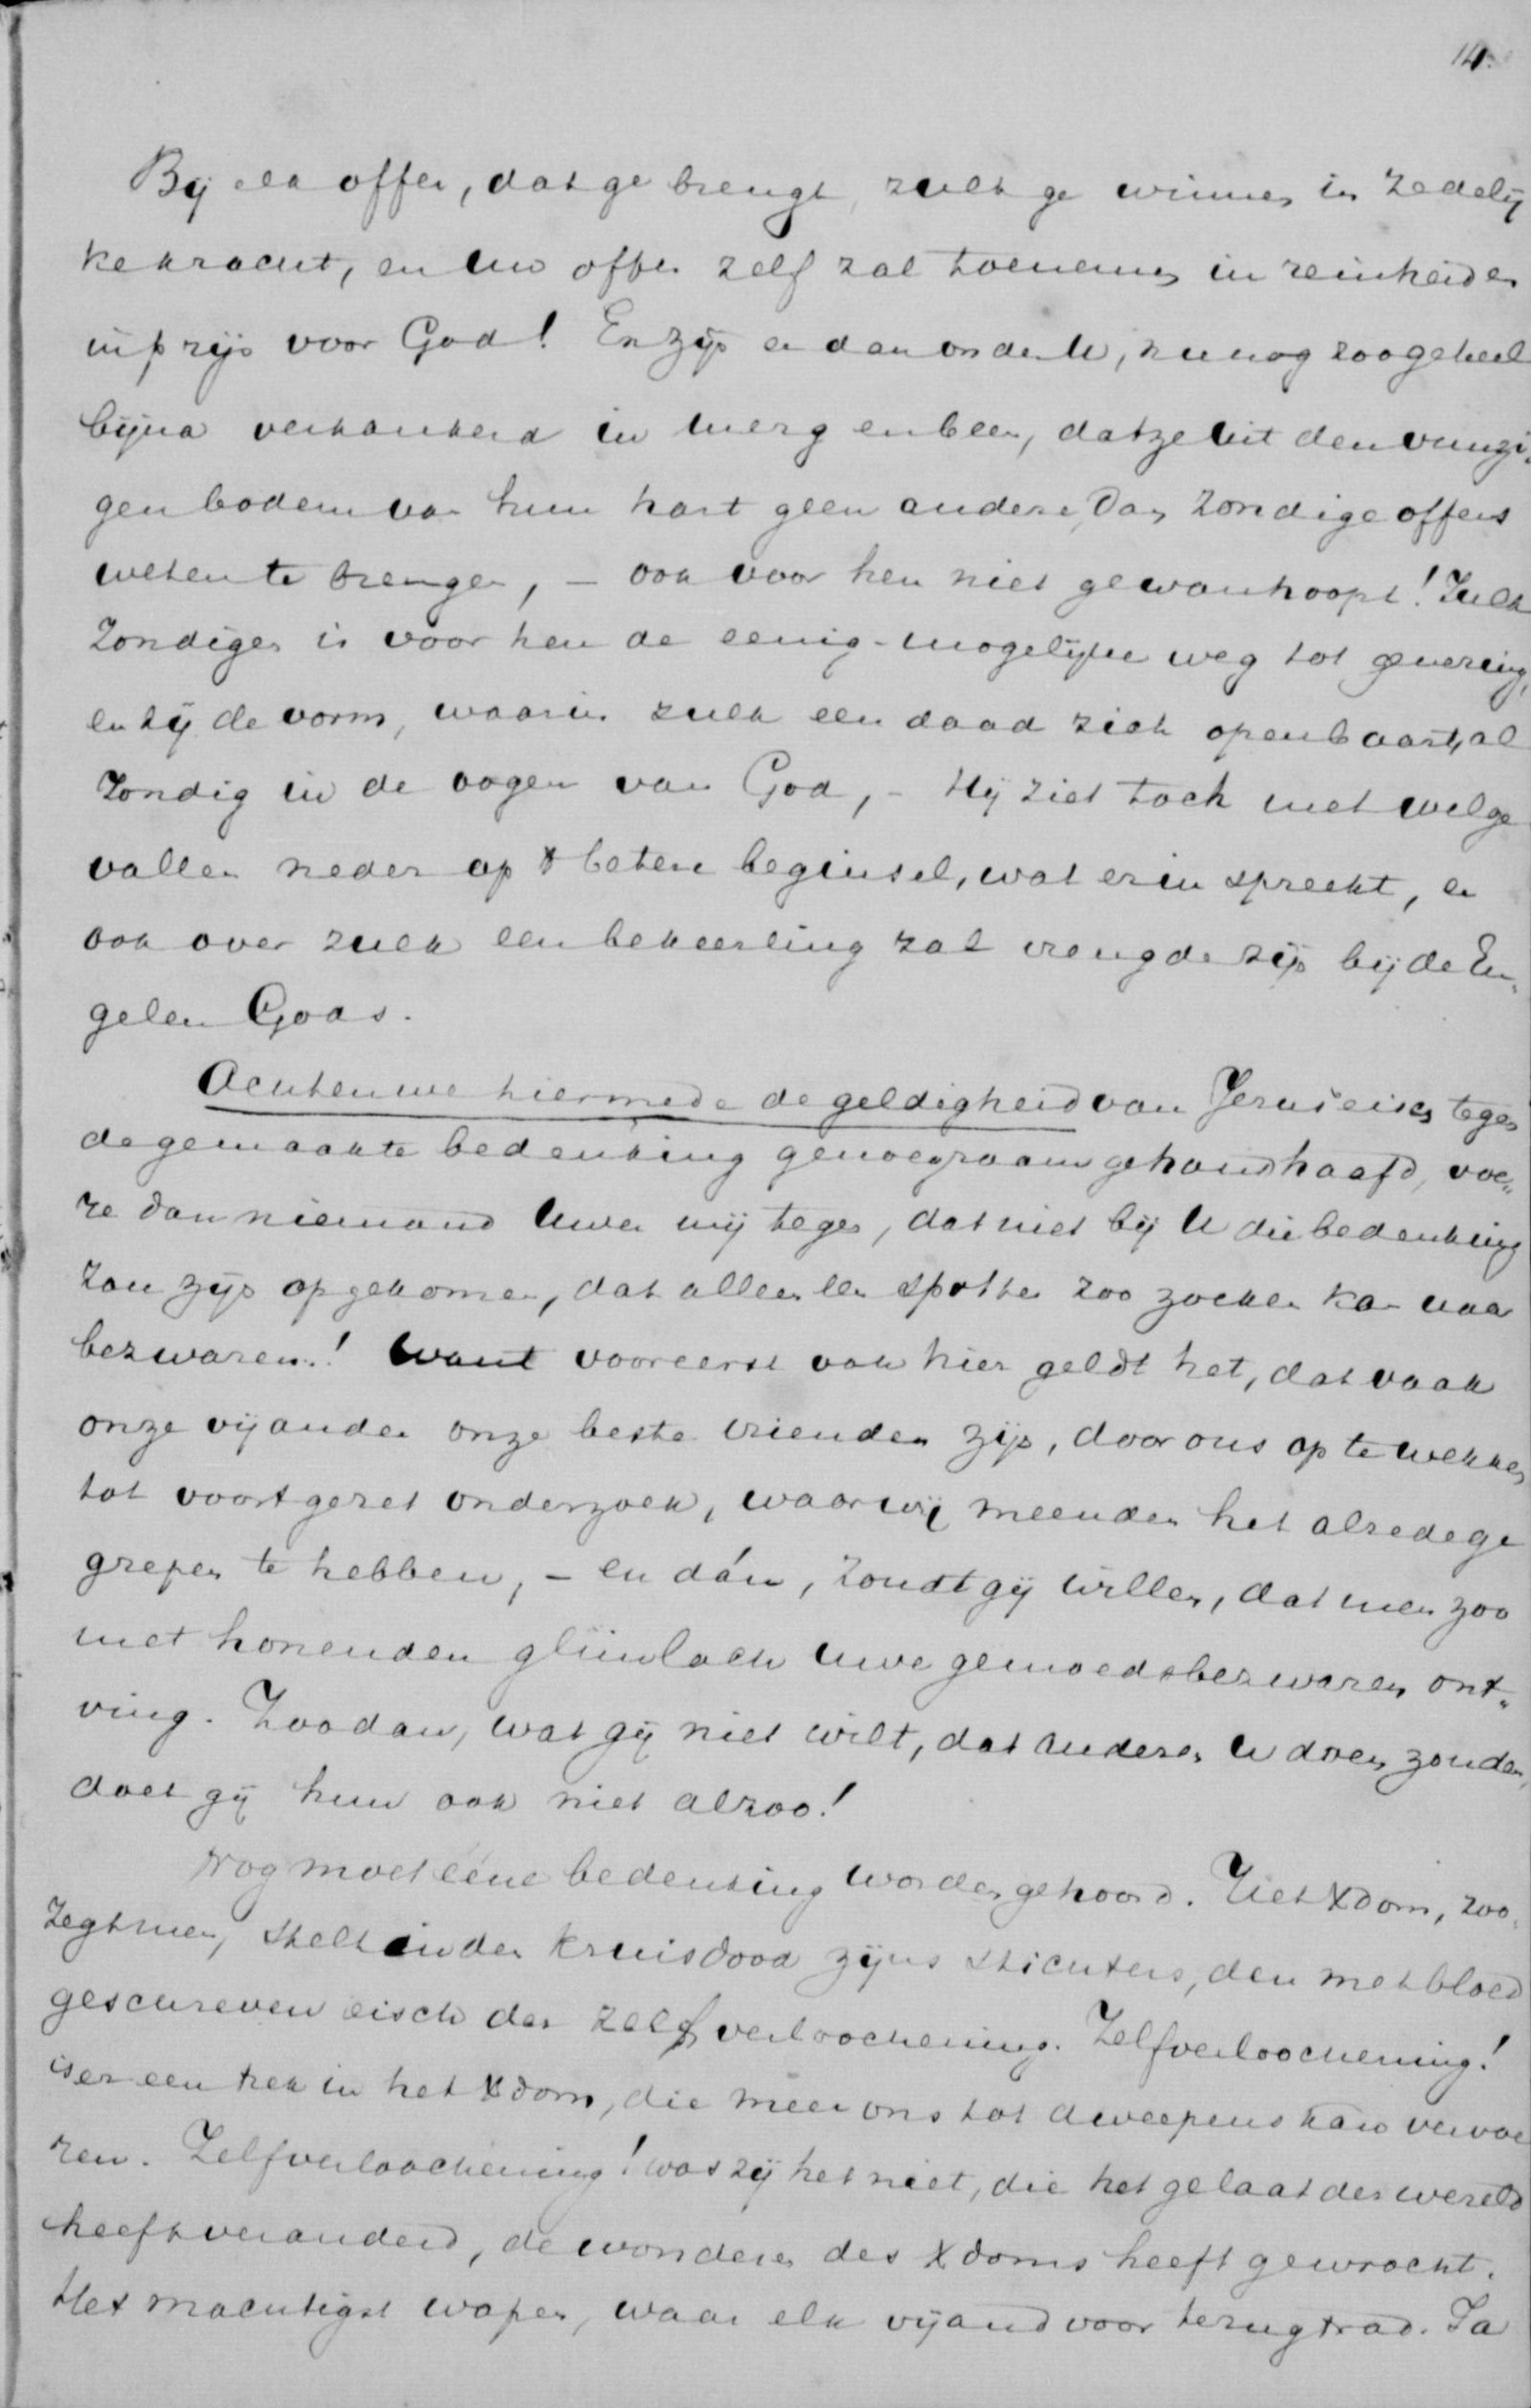 14.
Bij elk offer, dat ge brengt, zult ge winnen in zedelij
ke kracht, en uw offer zelf zal toenemen in reinheid en
in prijs voor God! En zijn er dan onder U, nu nog zoo geheel
bijna verkankerd in merg en been, dat ze uit den vunzi„
gen bodem van hun hart geen andere, dan zondige offers
weten te brengen, – ook voor hen niet gewanhoopt! Zulk
zondigen is voor hen de eenig-mogelijke weg tot genezing,
en zij de vorm, waarin zulk een daad zich openbaart, al
zondig in de oogen van God, – Hij ziet toch met welge
vallen neder op 't betere beginsel, wat erin spreekt, en
ook over zulk een bekeerling zal vreugde zijn bij de En„
gelen Gods.
Achten we hiermede de geldigheid van Jezus' eisch tegen
de gemaakte bedenking genoegzaam gehandhaafd, voe„
re dan niemand Uwer mij tegen, dat niet bij U die bedenking
zou zijn opgekomen, dat alleen een spotter zoo zoeken kan naar
bezwaren! Want vooreerst ook hier geldt het, dat vaak
onze vijanden onze beste vrienden zijn, door ons op te wekken
tot voortgezet onderzoek, waar wij meenden het alrede ge
grepen te hebben, – en dán, zoudt gij willen, dat men zoo
met honenden glimlach uwe gemoedsbezwaren ont„
ving. Zoo dan, wat gij niet wilt, dat anderen U doen zouden,
doet gij hun ook niet alzoo!
Nog moet ééne bedenking worden gehoord. Het Xdom, zoo
zegt men, stelt in den kruisdood zijns stichters, den met bloed
geschreven eisch der zelfverloochening. Zelfverloochening!
is er een trek in het Xdom, die meer ons tot dweepens kan vervoe
ren. Zelfverloochening! was zij het niet, die het gelaat der wereld
heeft veranderd, de wonderen des Xdoms heeft gewrocht.
Het machtigst wapen, waar elk vijand voor terugtrad. Ja